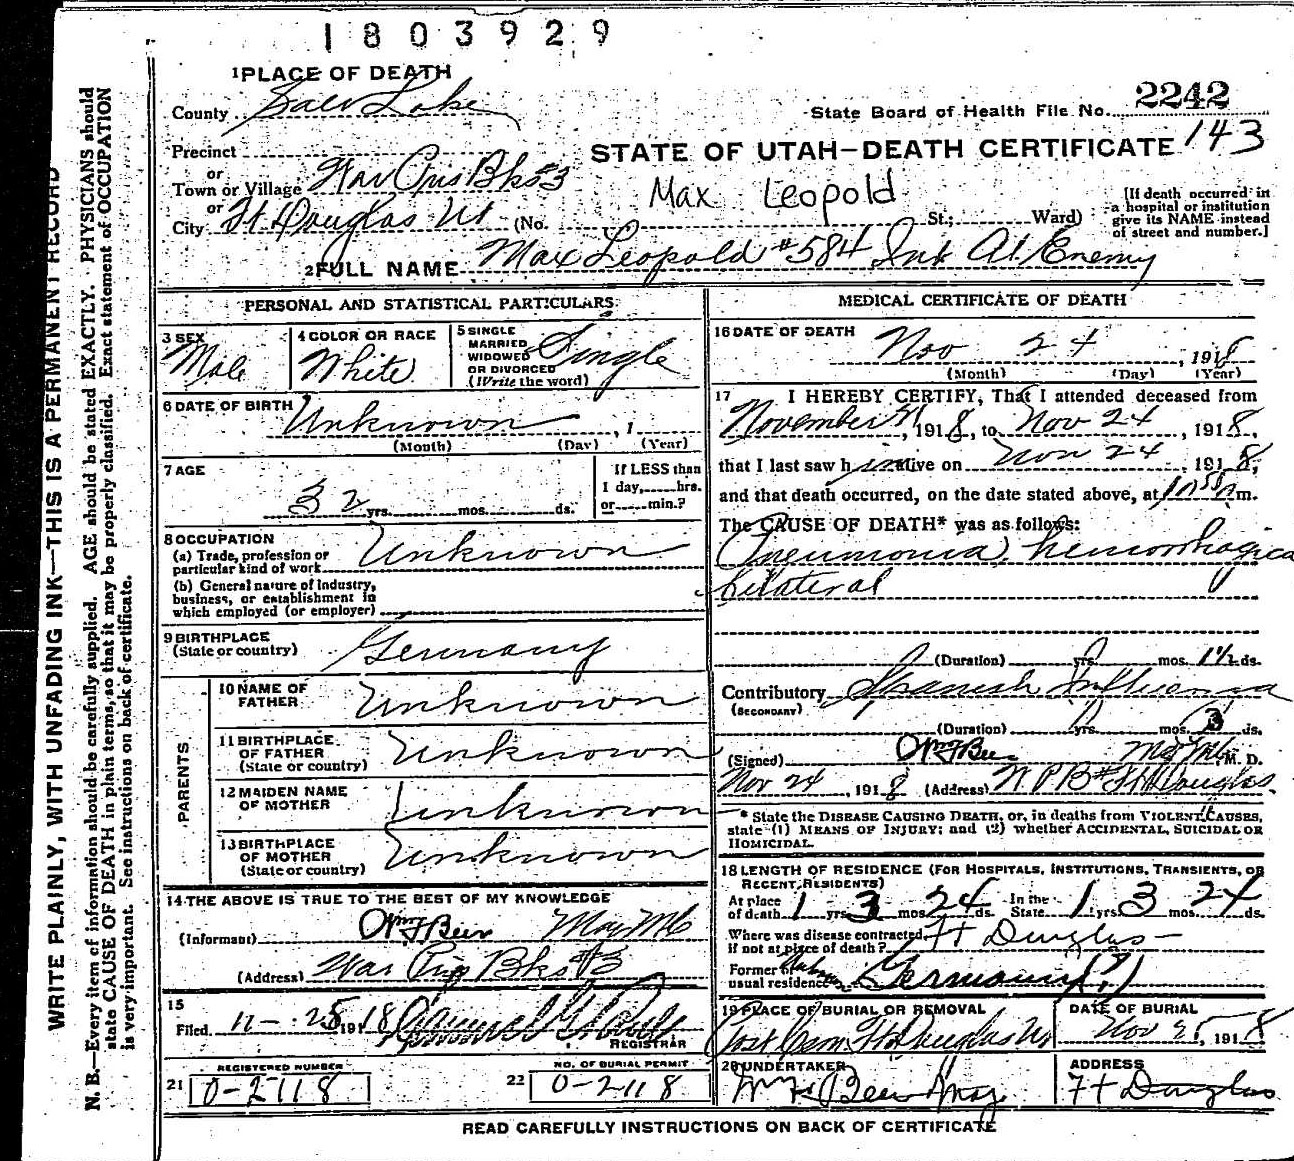 1803929
1 PLACE OF DEATH
County Salt Lake
State Board of Health File No. 2242
Precinct
STATE OF UTAH—DEATH CERTIFICATE 143
or
Town or Village War Pris Bks #3
Max Leopold
or
City Ft Douglas Ut (No. St.; Ward)
[If death occurred in
a hospital or institution
give its NAME instead
of street and number.]
2 FULL NAME Max Leopold #584 Int Al Enemy
PERSONAL AND STATISTICAL PARTICULARS
3 SEX
Male
4 COLOR OR RACE
White
5 SINGLE
MARRIED
WIDOWED
OR DIVORCED
(Write the word)
Single
6 DATE OF BIRTH Unknown, 1
(Month) (Day) (Year)
7 AGE
32 yrs. mos. ds.
If LESS than
1 day, hrs.
or min.?
8 OCCUPATION
(a) Trade, profession or
particular kind of work Unknown
(b) General nature of Industry,
business, or establishment in
which employed (or employer)
9 BIRTHPLACE
(State or country) Germany
PARENTS
10 NAME OF
FATHER Unknown
11 BIRTHPLACE
OF FATHER
(State or country) Unknown
12 MAIDEN NAME
OF MOTHER Unknown
13 BIRTHPLACE
OF MOTHER
(State or country) Unknown
14 THE ABOVE IS TRUE TO THE BEST OF MY KNOWLEDGE
(Informant) Wm F Beer Maj MC
(Address) War Pris Bks #3
15
Filed 11-25 1918
REGISTRAR
REGISTERED NUMBER
21 0-2118
NO. OF BURIAL PERMIT
22 0-2118
MEDICAL CERTIFICATE OF DEATH
16 DATE OF DEATH
Nov 24, 1918
(Month) (Day) (Year)
17 I HEREBY CERTIFY, That I attended deceased from
November, 1918, to Nov 24, 1918,
that I last saw him alive on Nov 24 1918,
and that death occurred, on the date stated above, at m.
The CAUSE OF DEATH* was as follows:
Pneumonia, hemorrhagica
bilateral
(Duration) yrs. mos. 1½ ds.
Contributory Spanish Influenza
(SECONDARY)
(Duration) yrs. mos. 3 ds.
(Signed) Wm F Beer Maj MC M. D.
Nov 24, 1918 (Address) W P B # Ft Douglas
* State the DISEASE CAUSING DEATH, or, in deaths from VIOLENT CAUSES,
state (1) MEANS OF INJURY; and (2) whether ACCIDENTAL, SUICIDAL OR
HOMICIDAL.
18 LENGTH OF RESIDENCE (FOR HOSPITALS, INSTITUTIONS, TRANSIENTS, OR
RECENT RESIDENTS)
At place
of death 1 yrs 3 mos 24 ds.
In the
State 1 yrs 3 mos 24 ds.
Where was disease contracted,
if not at place of death? Ft Douglas
Former or
usual residence Germany (?)
19 PLACE OF BURIAL OR REMOVAL
Post Cem Ft Douglas Ut
DATE OF BURIAL
Nov 25, 1918
20 UNDERTAKER
Wm F Beer Maj
ADDRESS
Ft Douglas
READ CAREFULLY INSTRUCTIONS ON BACK OF CERTIFICATE
WRITE PLAINLY, WITH UNFADING INK—THIS IS A PERMANENT RECORD
N. B.—Every item of information should be carefully supplied. AGE should be stated EXACTLY. PHYSICIANS should
state CAUSE OF DEATH in plain terms, so that it may be properly classified. Exact statement of OCCUPATION
is very important. See instructions on back of certificate.